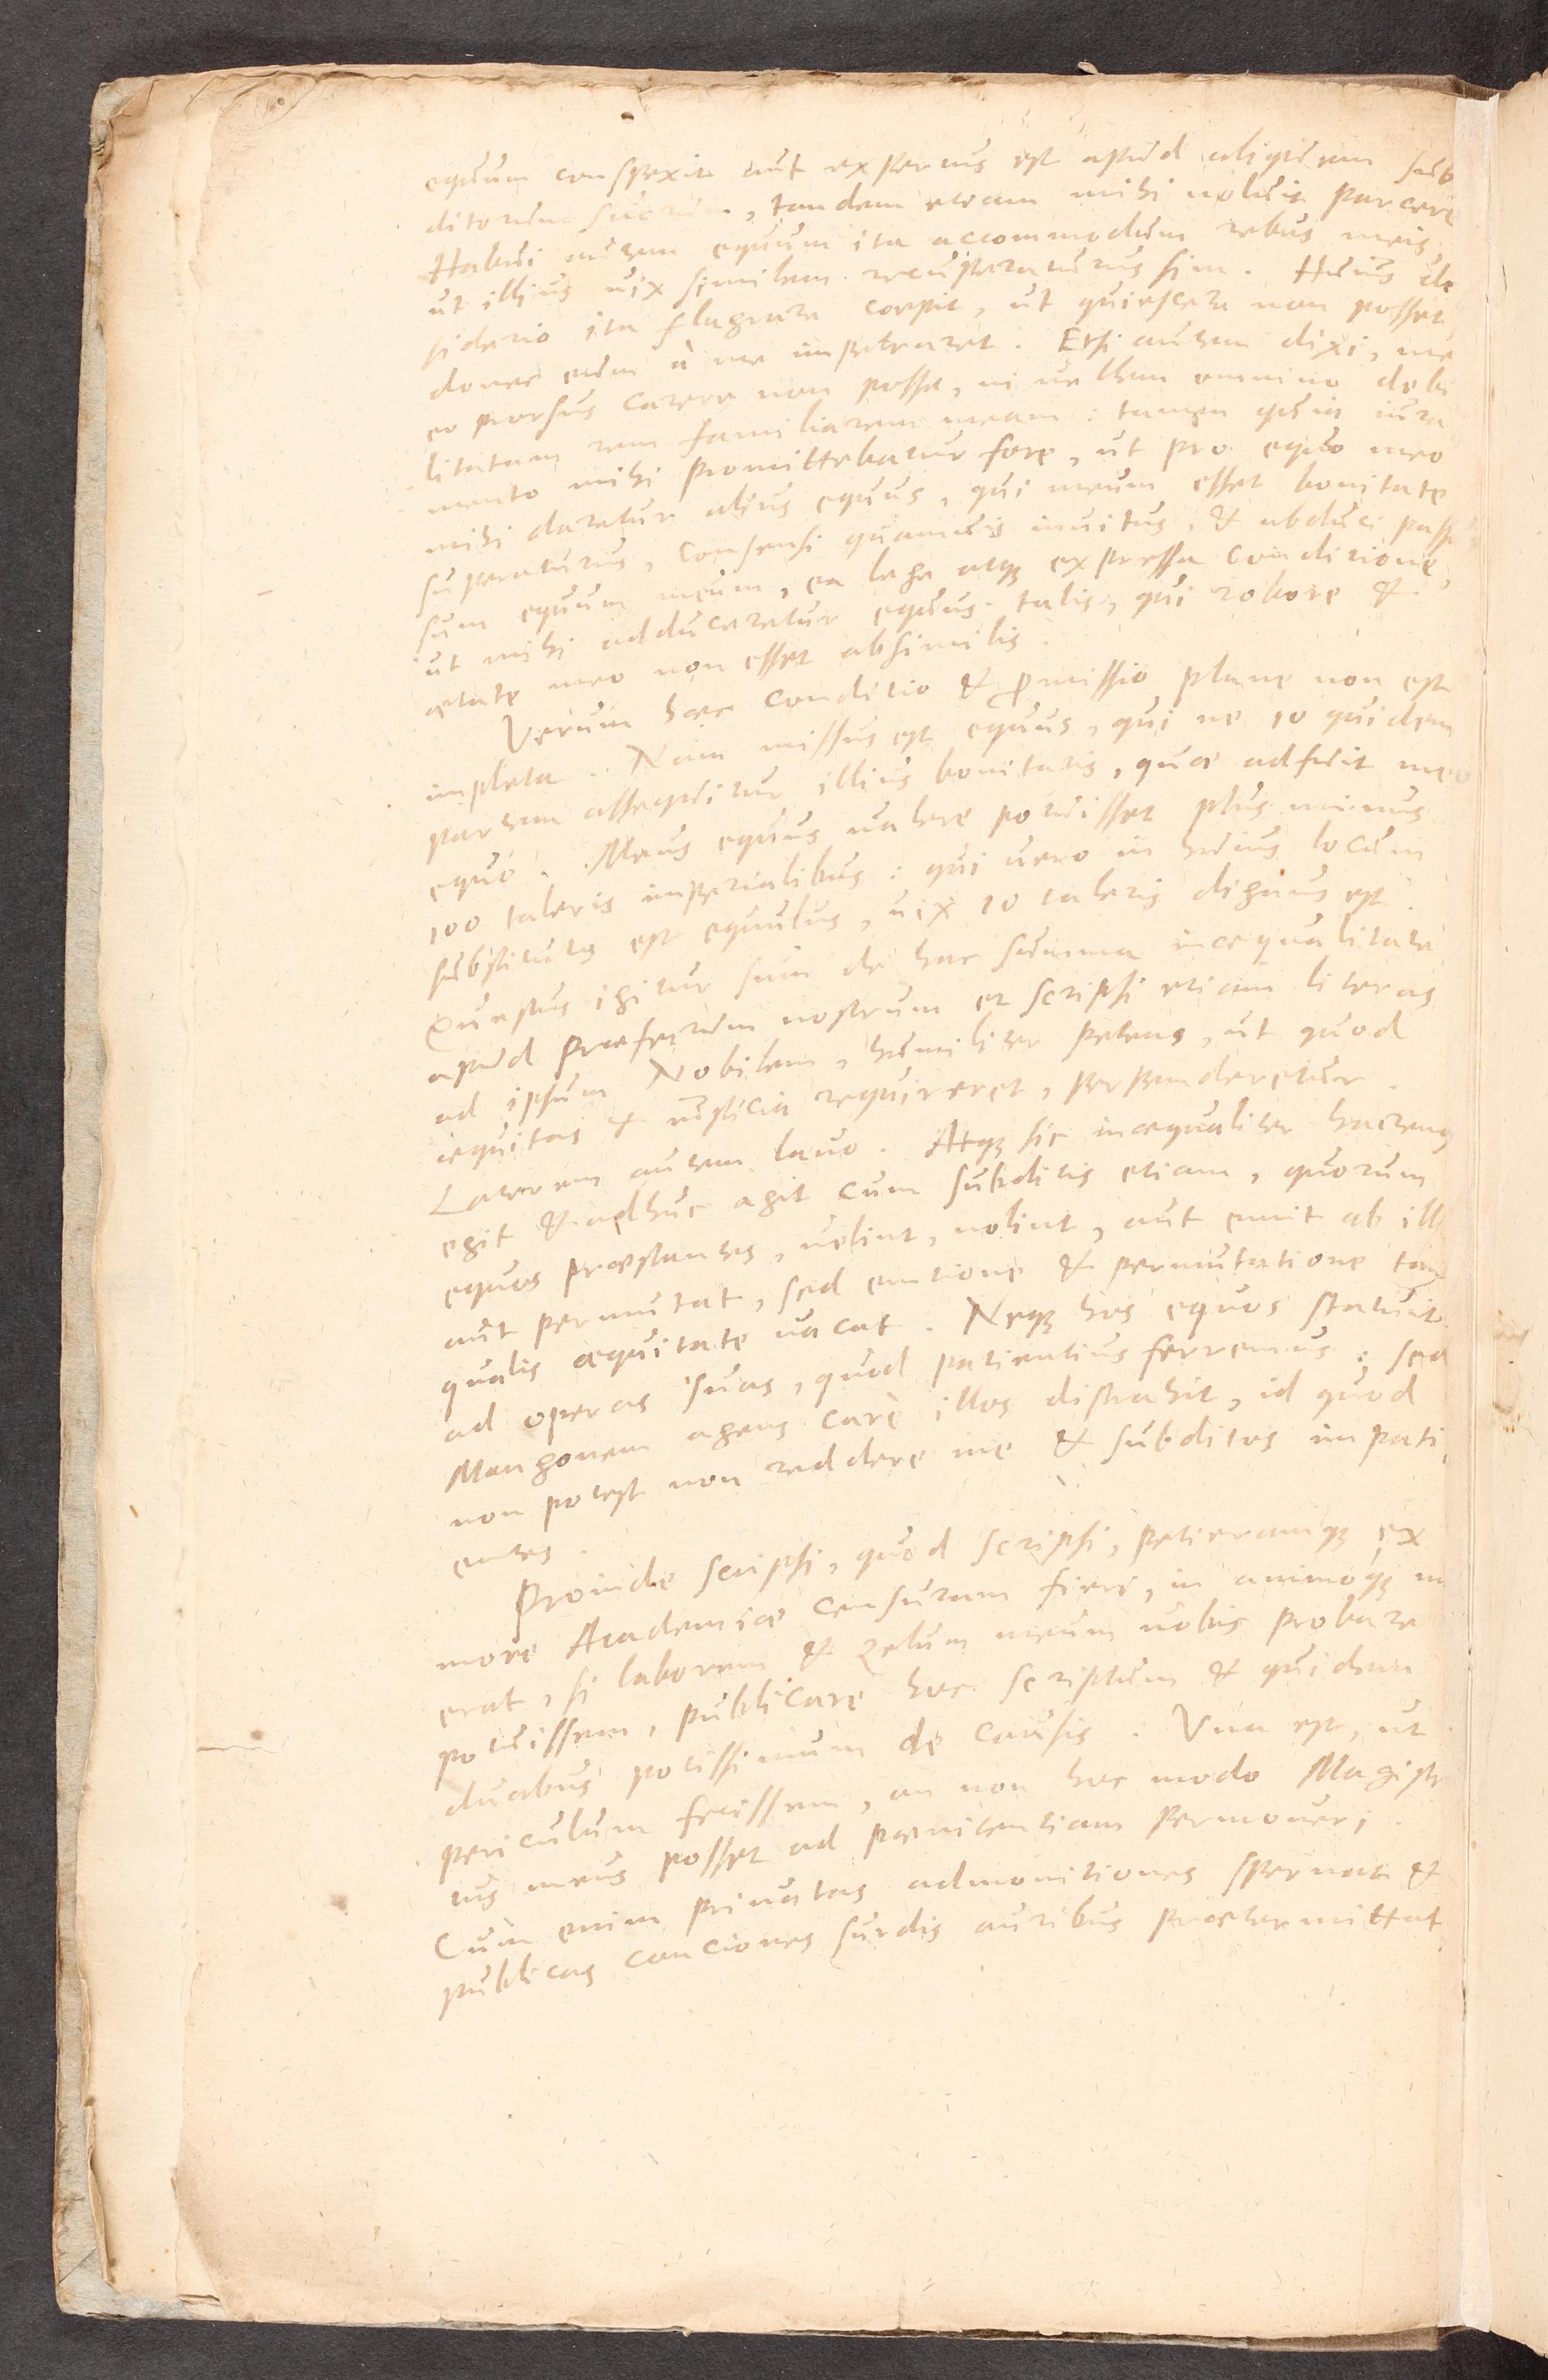 equum conspexit aut expertus est apud aliquem sub
ditorum suorum, tandem etiam mihi noluit parcere
Habui autem equum ita accommodum rebus meis
ut illius uix similem recuperaturus sim. Huius de
siderio ita flagrare coepit, ut quiescere non posset
donec eum à me impetraret. Etsi autem dixi, me
eo prorsus carere non posse, ni uellem omnino debi
litatam rem familiarem meam: tamen quia iura
mento mihi promittebatur fore, ut pro equo meo
mihi daretur alius equus, qui meum esset bonitate
superaturus, consensi quamuis inuitus, & abduci pass
sum equum meum, ea lege atq expressa conditione,
ut mihi adduceretur equus talis, qui robore &
ætate meo non esset absimilis.
Verum hæc conditio & promissio plane non est
impleta. Nam missus est equus, qui ne 10 quidem
partem assequitur illius bonitatis, quæ adfuit meo
equo. Meus equus ualere potuisset plus minus
100 taleris imperialibus: qui uero in huius locum
substitutus est equulus, uix 10 taleris dignus est.
Questus igitur sum de hac summa inæqualitate
apud Præfectum nostrum et scripsi etiam literas
ad ipsum Nobilem, humiliter petens, ut quod
æquitas & iusticia requireret, perpenderetur.
Laterem autem lauo. Atq sic inæqualiter hactenus
egit & adhuc agit cum subditis etiam, quorum
equos præstantes, uelint, nolint, aut emit ab ill
aut permutat, sed emtione & permutatione tam
qualis æquitate uacat. Neq hos equos statuit
ad operas suas, quod patientius ferremus: sed
Mangonem agens care illos distrahit, id quod
non potest non reddere me & subditos impati
entes.
Proinde scripsi, quod scripsi, petieramq ex
more Academiæ censuram fieri, in animoq m
erat, si laborem & zelum meum uobis probare
potuissem, publicare hoc scriptum & quidem
duabus potissimum de causis. Vna est, ut
periculum fecissem, an non hoc modo Magistra
tus meus posset ad pœnitentiam permoueri.
Cum enim priuatas admonitiones spernat &
publicas conciones surdis auribus prætermittat